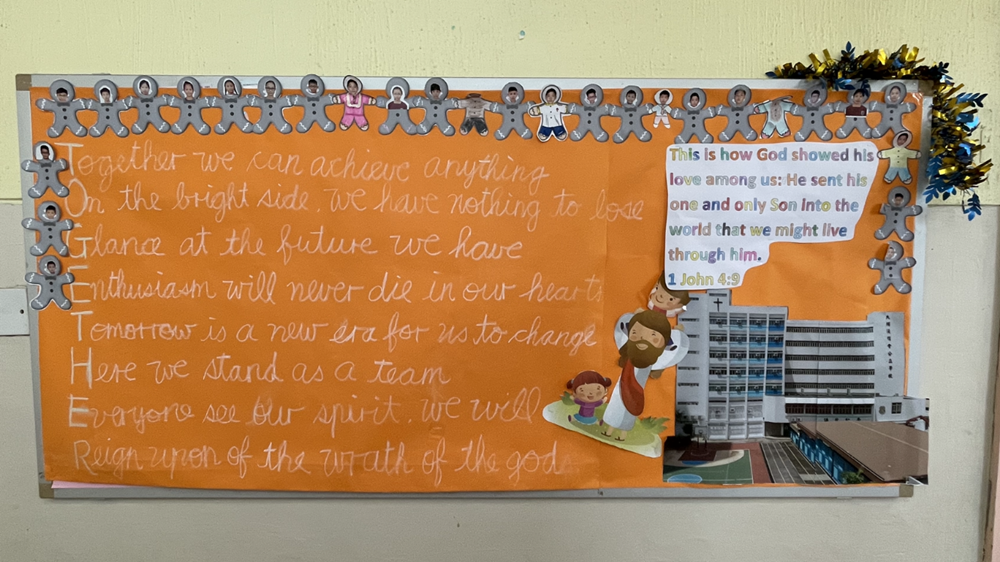 Together we can achieve anything
On the bright side, we have nothing to lose
Glance at the future we have
Enthusiasm will never die in our hearts
Tomorrow is a new era for us to change
Here we stand as a team
Everyone see our spirit, we will
Reign upon of the wrath of the gods
This is how God showed his
love among us: He sent his
one and only Son into the
world that we might live
through him.
1 John 4:9